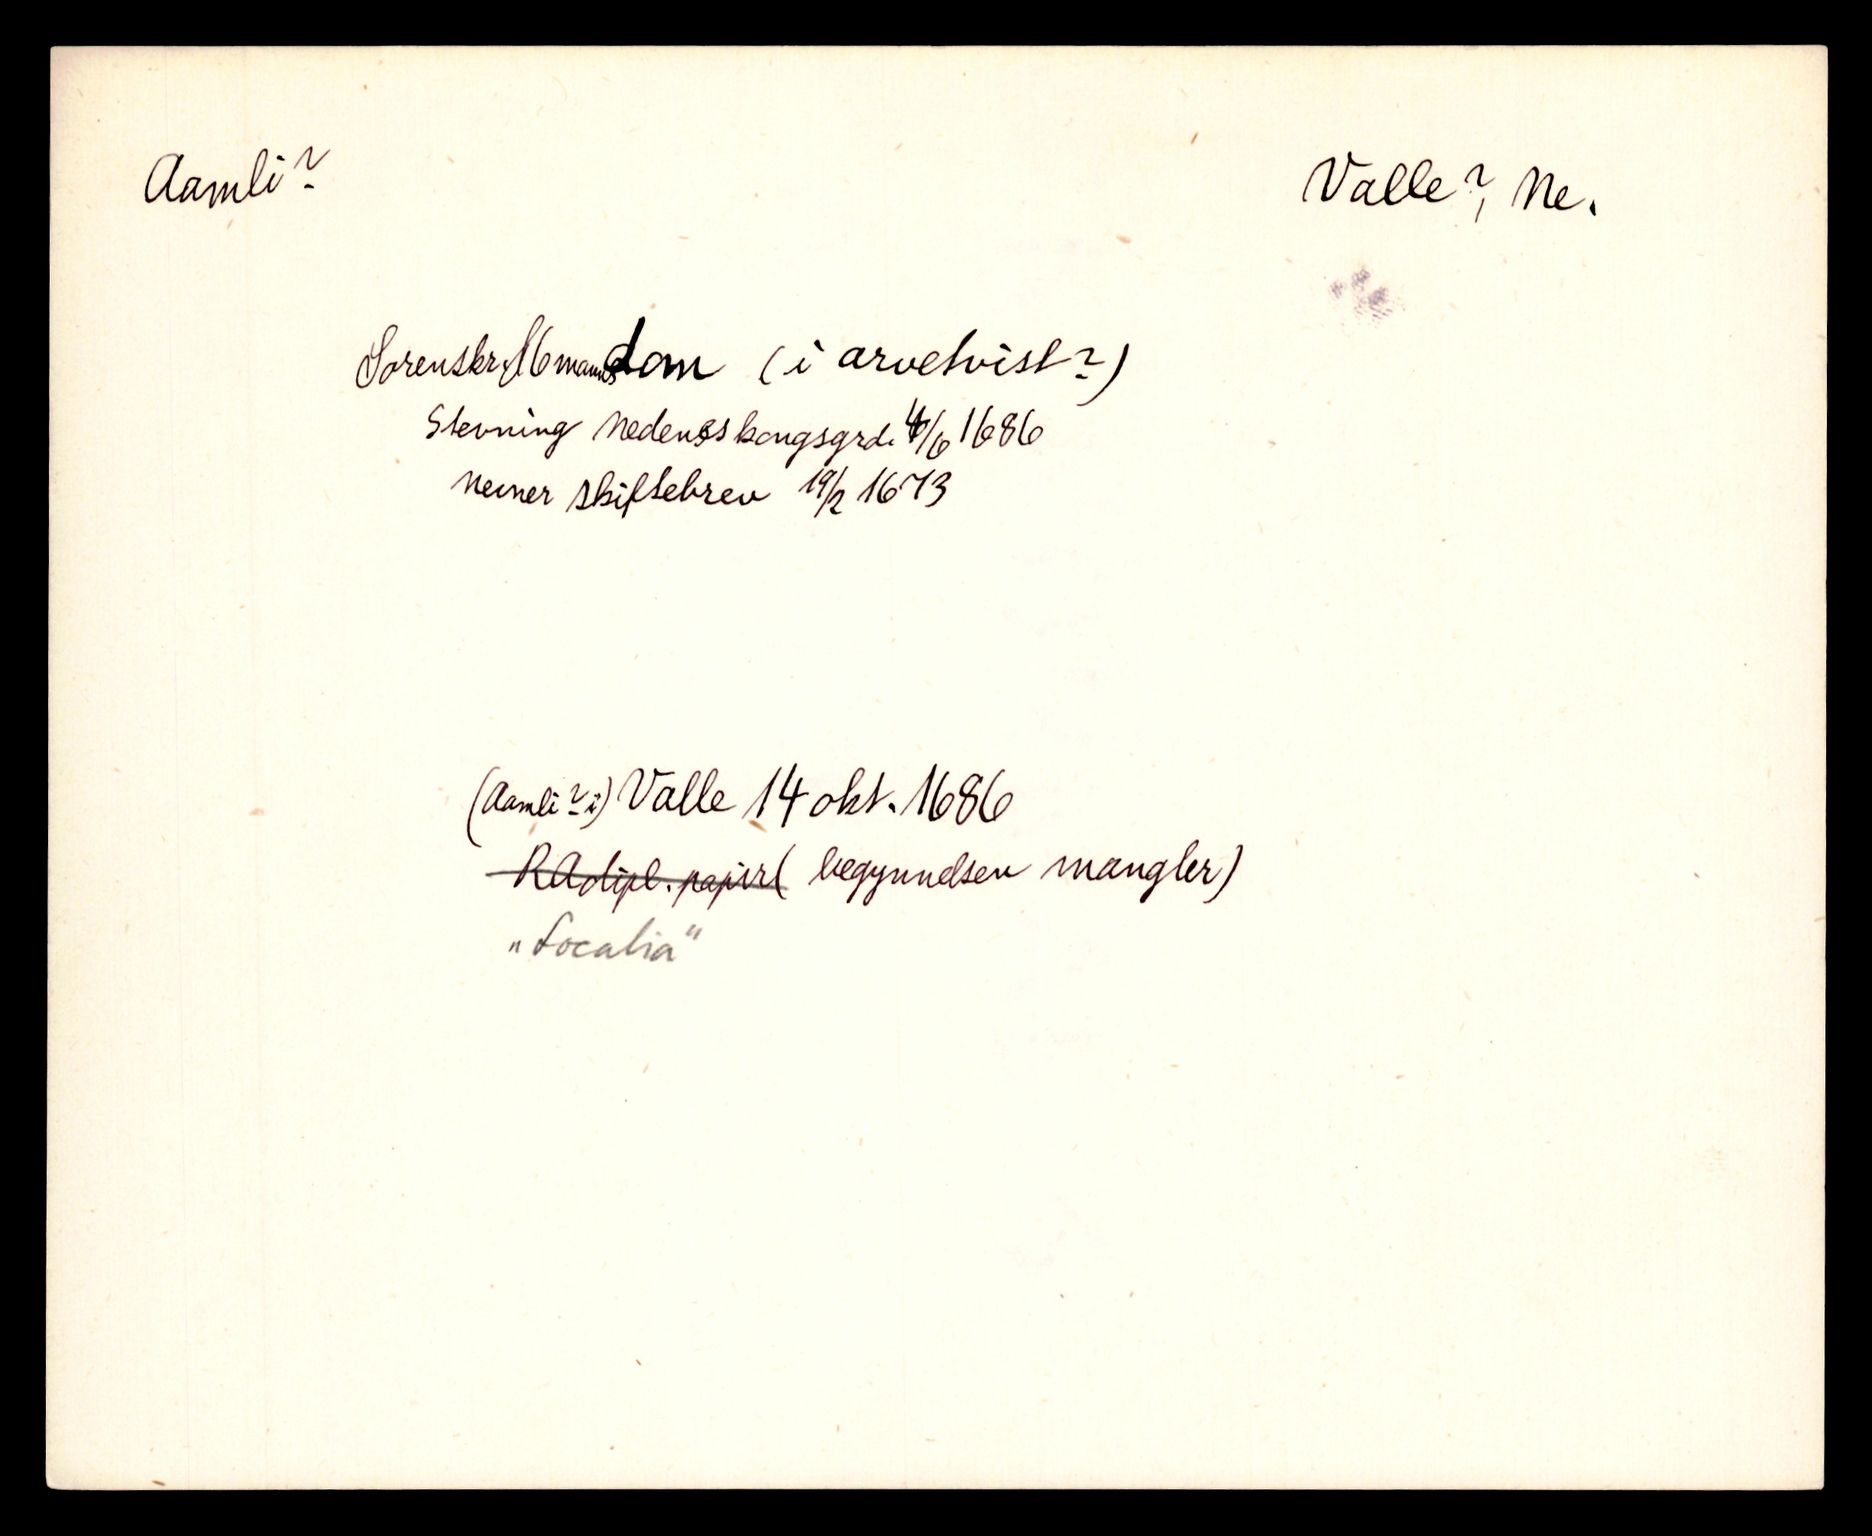 Aamli?
Valle?, Ne.
Sorenskr. & 6 manns dom (i arvetvist?)
Stevning Nedenes kongsgrd. 4/6 1686
nevner skiftebrev 19/2 1673
(Aamli? i) Valle 14 okt. 1686
RA dipl. papir (begynnelsen mangler)
"Localia"